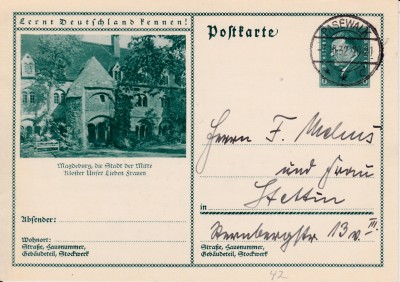 Lernt Deutschland kennen!
Postkarte
PASEWALK
Magdeburg, die Stadt der Mitte
Kloster Unser Lieben Frauen
Herrn F. Melms
und Frau
Stettin
in
Sternbergstr. 13 v. III.
Absender:
Wohnort:
Straße, Hausnummer,
Gebäudeteil, Stockwerk
Straße, Hausnummer,
Gebäudeteil, Stockwerk
42